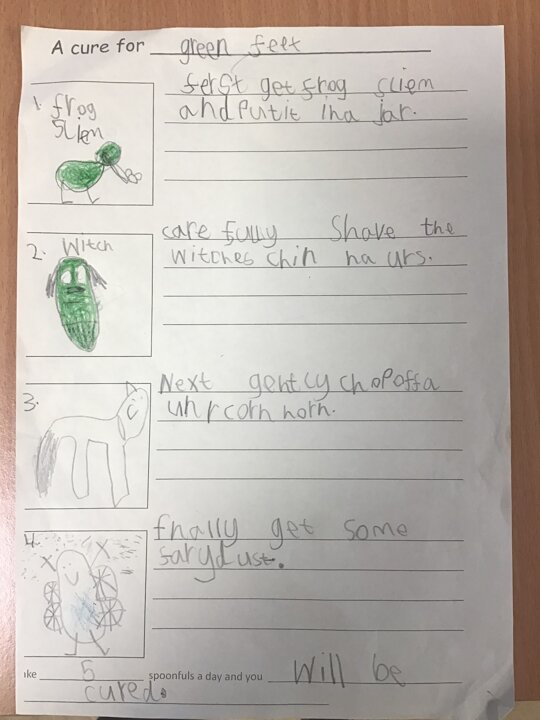 A cure for green feet
1. frog
sliem
ferst get frog sliem
and put it ina jar.
2. Witch
care fully Shave the
witches chin ha urs.
3.
Next gently chop off a
unrcorn horn.
4.
fnally get some
farydust.
ike 5 spoonfuls a day and you Will be
cured.